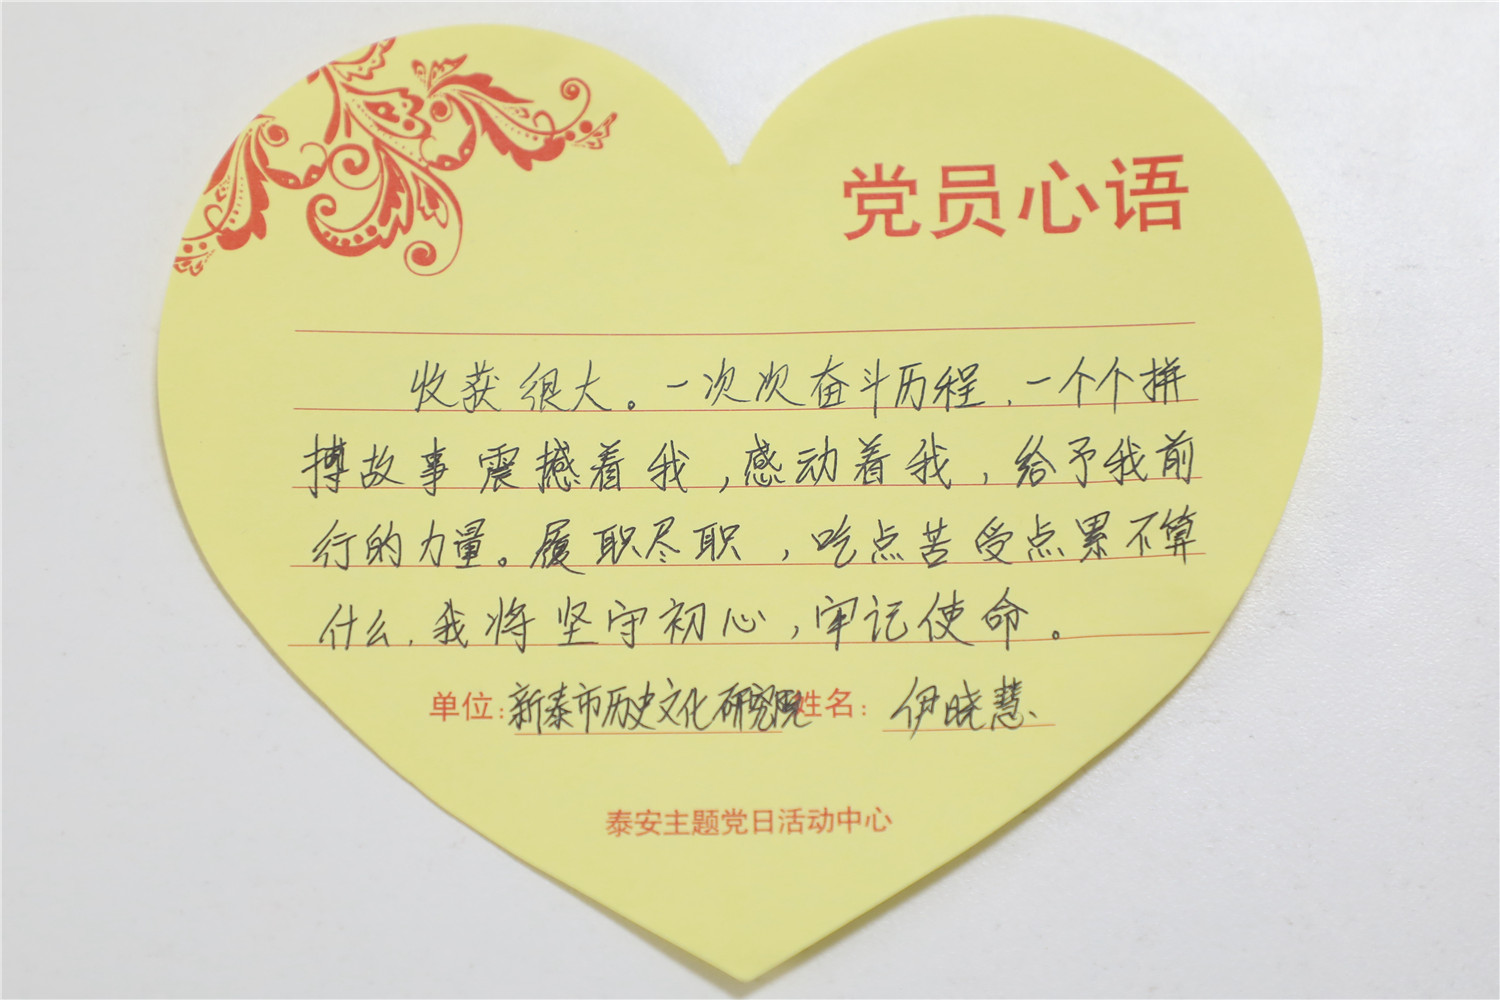 党员心语
收获很大。一次次奋斗历程,一个个拼
搏故事震撼着我,感动着我,给予我前
行的力量。履职尽职,吃点苦受点累不算
什么,我将坚守初心,牢记使命。
单位:新泰市历史文化研究院 姓名:伊晓慧
泰安主题党日活动中心